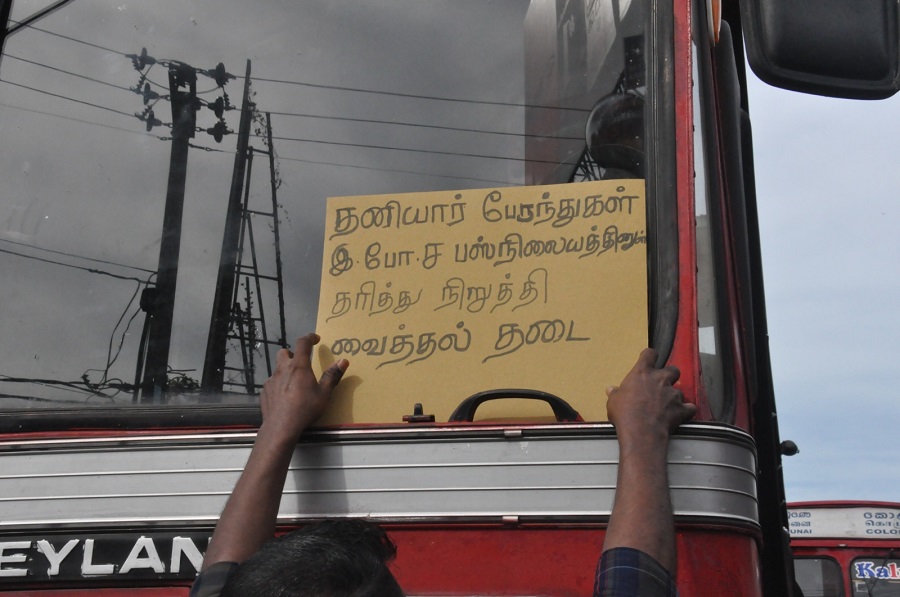 தனியார் பேரூந்துகள்
இ.போ.ச பஸ்நிலையத்தினுள்
தரித்து நிறுத்தி
வைத்தல் தடை
EYLAN
UNAI
COLO
Kal